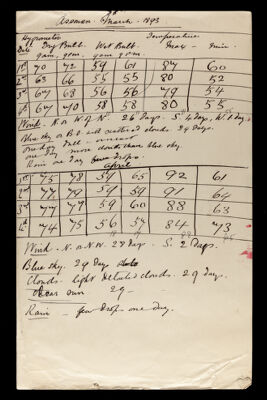 Assouan. March. 1843
Hygrometer Temperature
Date Dry Bulb. Wet Bulb. Max. Min.
9am. 9pm. 9am 9pm.
1st 70 72 59 61 87 60
2d 63 66 55 55 80 52
3d 67 68 56 56 79 54
4th 67 70 58 58 80 55
Wind. N. or W of N. 26 Days. S. 4 days, W. 1 day
Blue sky or B. D. with scattered clouds 29 days.
one day
one day more clouds than blue sky.
Rain one day few drops.
April
1st 75 78 59 65 92 61
2d 77 79 59 59 91 64
3d 77 79 59 60 88 63
4 74 75 56 57 84 73
Wind. N. or N.W. 28 Days. S. 2 Days.
Blue sky. 29 Days
Clouds. light detached clouds. 29 days.
Clear sun 29
Rain - few drops one day.